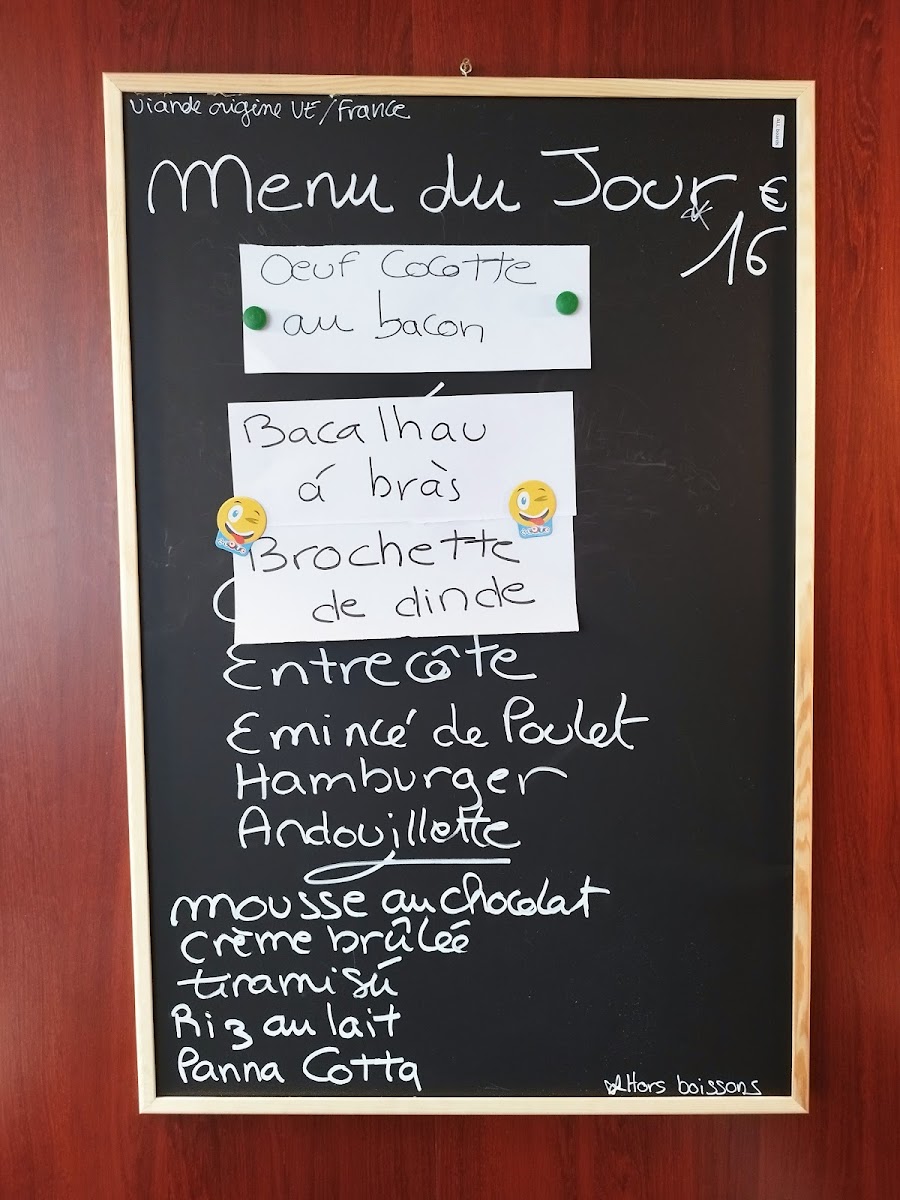 Viande origine UE/France
Menu du Jour* €
16
Oeuf Cocotte
au bacon
Bacalhau
á bràs
Brochette
de dinde
Entrecôte
Emincé de Poulet
Hamburger
Andouillette
mousse au chocolat
Crème brûlée
tiramisú
Riz au lait
Panna Cotta
*Hors boissons